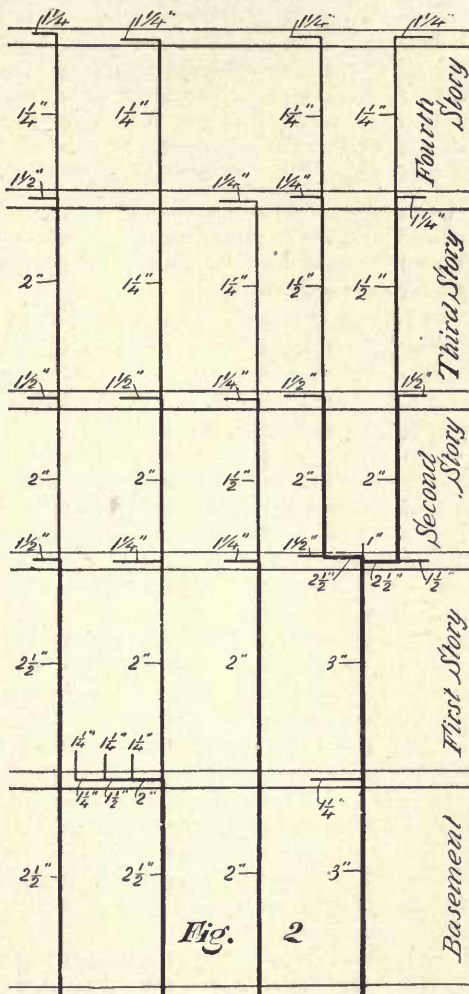 1¼ 1¼" 1¼" 1¼"
1¼" 1¼" 1¼" 1¼"
Fourth
Story
1½" 1¼" 1¼"
1¼"
2" 1¼" 1¼" 1½" 1½"
Third Story
1½" 1½" 1¼" 1½" 1½"
2" 2" 1½" 2" 2"
Second
Story
1½" 1¼" 1¼" 1½" 1"
2½" 2½" 1½"
2½" 2" 2" 3"
First Story
1¼" 1¼" 1¼"
1¼" 1½" 2" 1¼"
2½" 2½" 2" 3"
Basement
Fig. 2